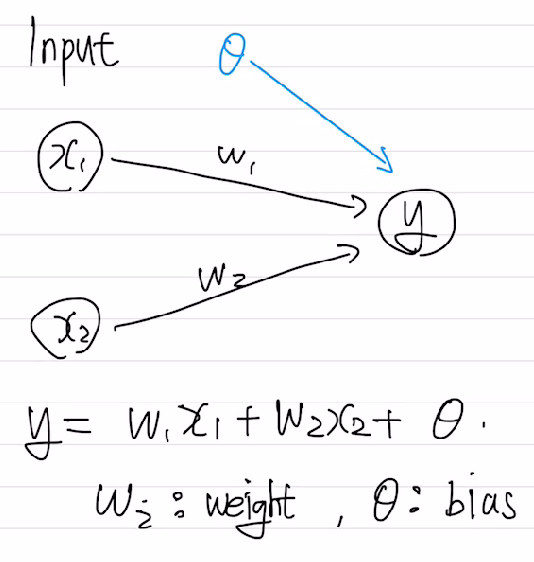 Input
θ
x₁
w₁
y
w₂
x₂
y = w₁x₁ + w₂x₂ + θ.
wᵢ : weight , θ : bias